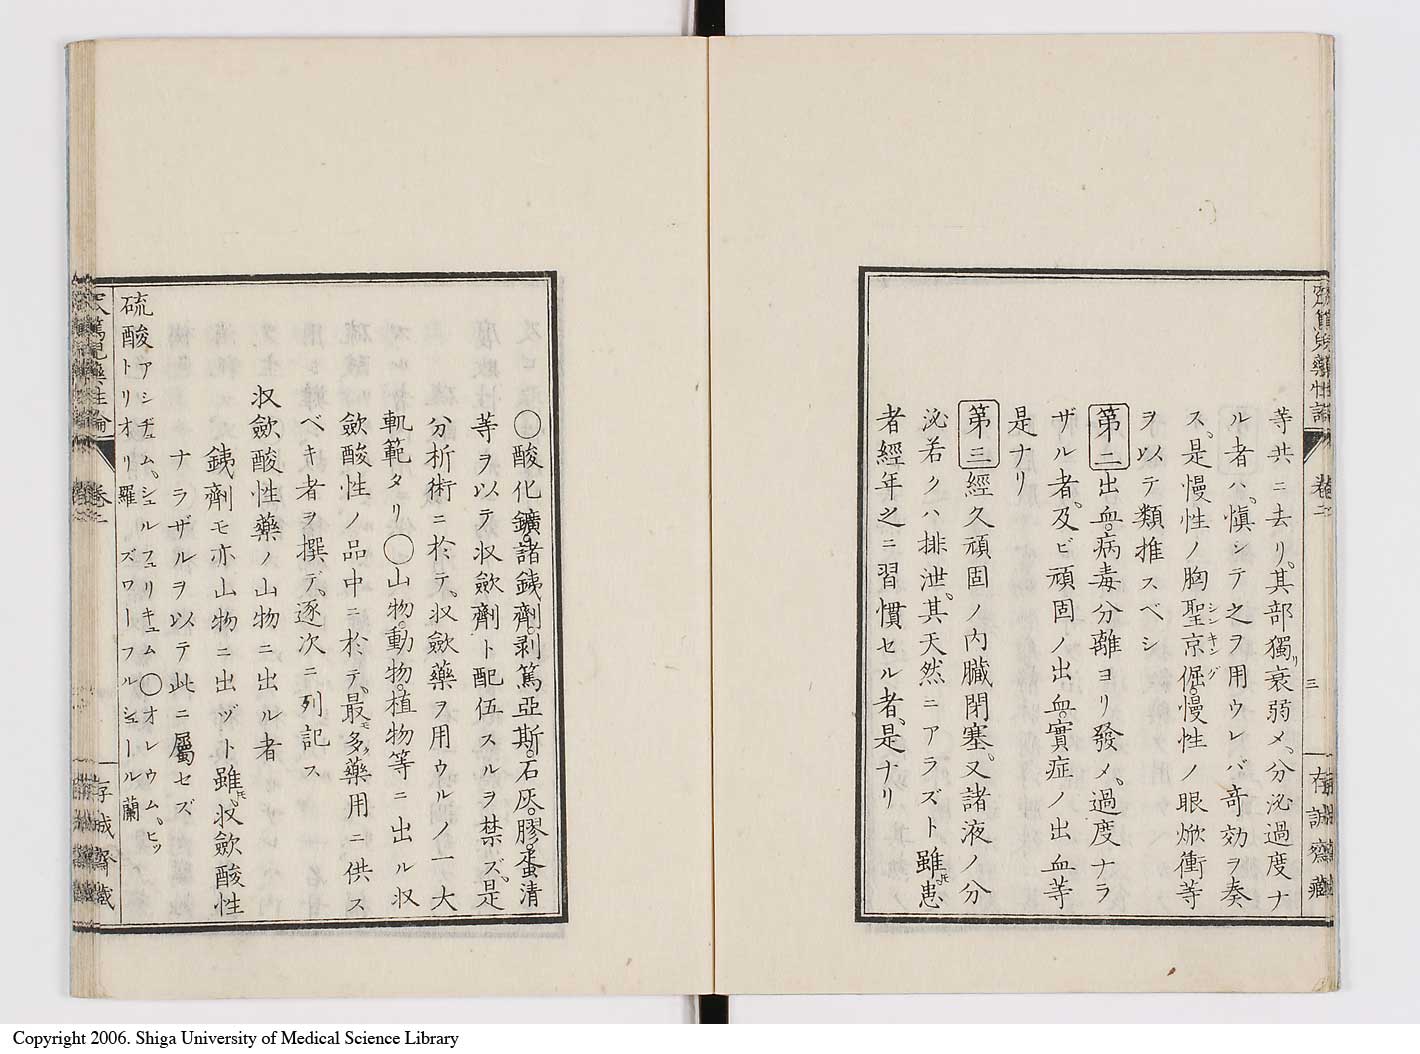 等共ニ去リ、其部獨リ衰弱メ、分泌過度ナ
ル者ハ、愼シテ之ヲ用ウレバ奇効ヲ奏
ス、是慢性ノ胸聖京倔。慢性ノ眼焮衝等
シンキング
ヲ以テ類推スベシ
第二出血。病毒分離ヨリ發メ、過度ナラ
ザル者、及ビ頑固ノ出血。實症ノ出血等
是ナリ
第三經久頑固ノ内臓閉塞、又諸液ノ分
泌若クハ排泄、其天然ニアラズト雖𪜈患
者經年之ニ習慣セル者、是ナリ
三
存誠齋藏
〇酸化鑛。諸銕劑。剥篤亞斯。石灰。膠。蛋清
等ヲ以テ収斂劑ト配伍スルヲ禁ズ。是
分析術ニ於テ、収斂藥ヲ用ウルノ一大
軌範タリ〇山物。動物。植物等ニ出ル収
斂酸性ノ品中ニ於テ、最モ多ク藥用ニ供ス
ベキ者ヲ撰デ、逐次ニ列記ス
収斂酸性藥ノ山物ニ出ル者
銕劑モ亦山物ニ出ヅト雖𪜈、収斂酸性
ナラザルヲ以テ此ニ屬セズ
硫酸アシデュム、シュルフュリキュム〇オレウム、ヒッ
トリオリ羅 ズワーフルシュール蘭
篤兒藥性論
卷二
Copyright 2006. Shiga University of Medical Science Library